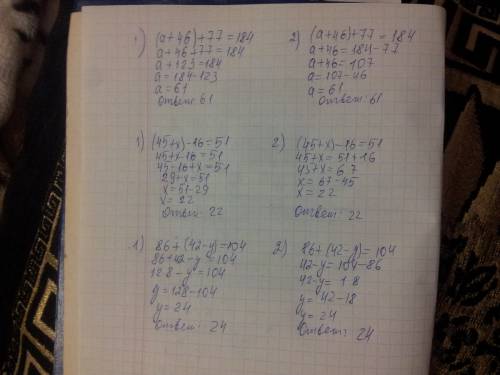 1) (a+46)+77=184
a+46+77=184
a+123=184
a=184-123
a=61
Ответ: 61
2) (a+46)+77=184
a+46=184-77
a+46=107
a=107-46
a=61
Ответ: 61
1) (45+x)-16=51
45+x-16=51
45-16+x=51
29+x=51
x=51-29
x=22
Ответ: 22
2) (45+x)-16=51
45+x=51+16
45+x=67
x=67-45
x=22
Ответ: 22
1) 86+(42-y)=104
86+42-y=104
128-y=104
y=128-104
y=24
Ответ: 24
2) 86+(42-y)=104
42-y=104-86
42-y=18
y=42-18
y=24
Ответ: 24